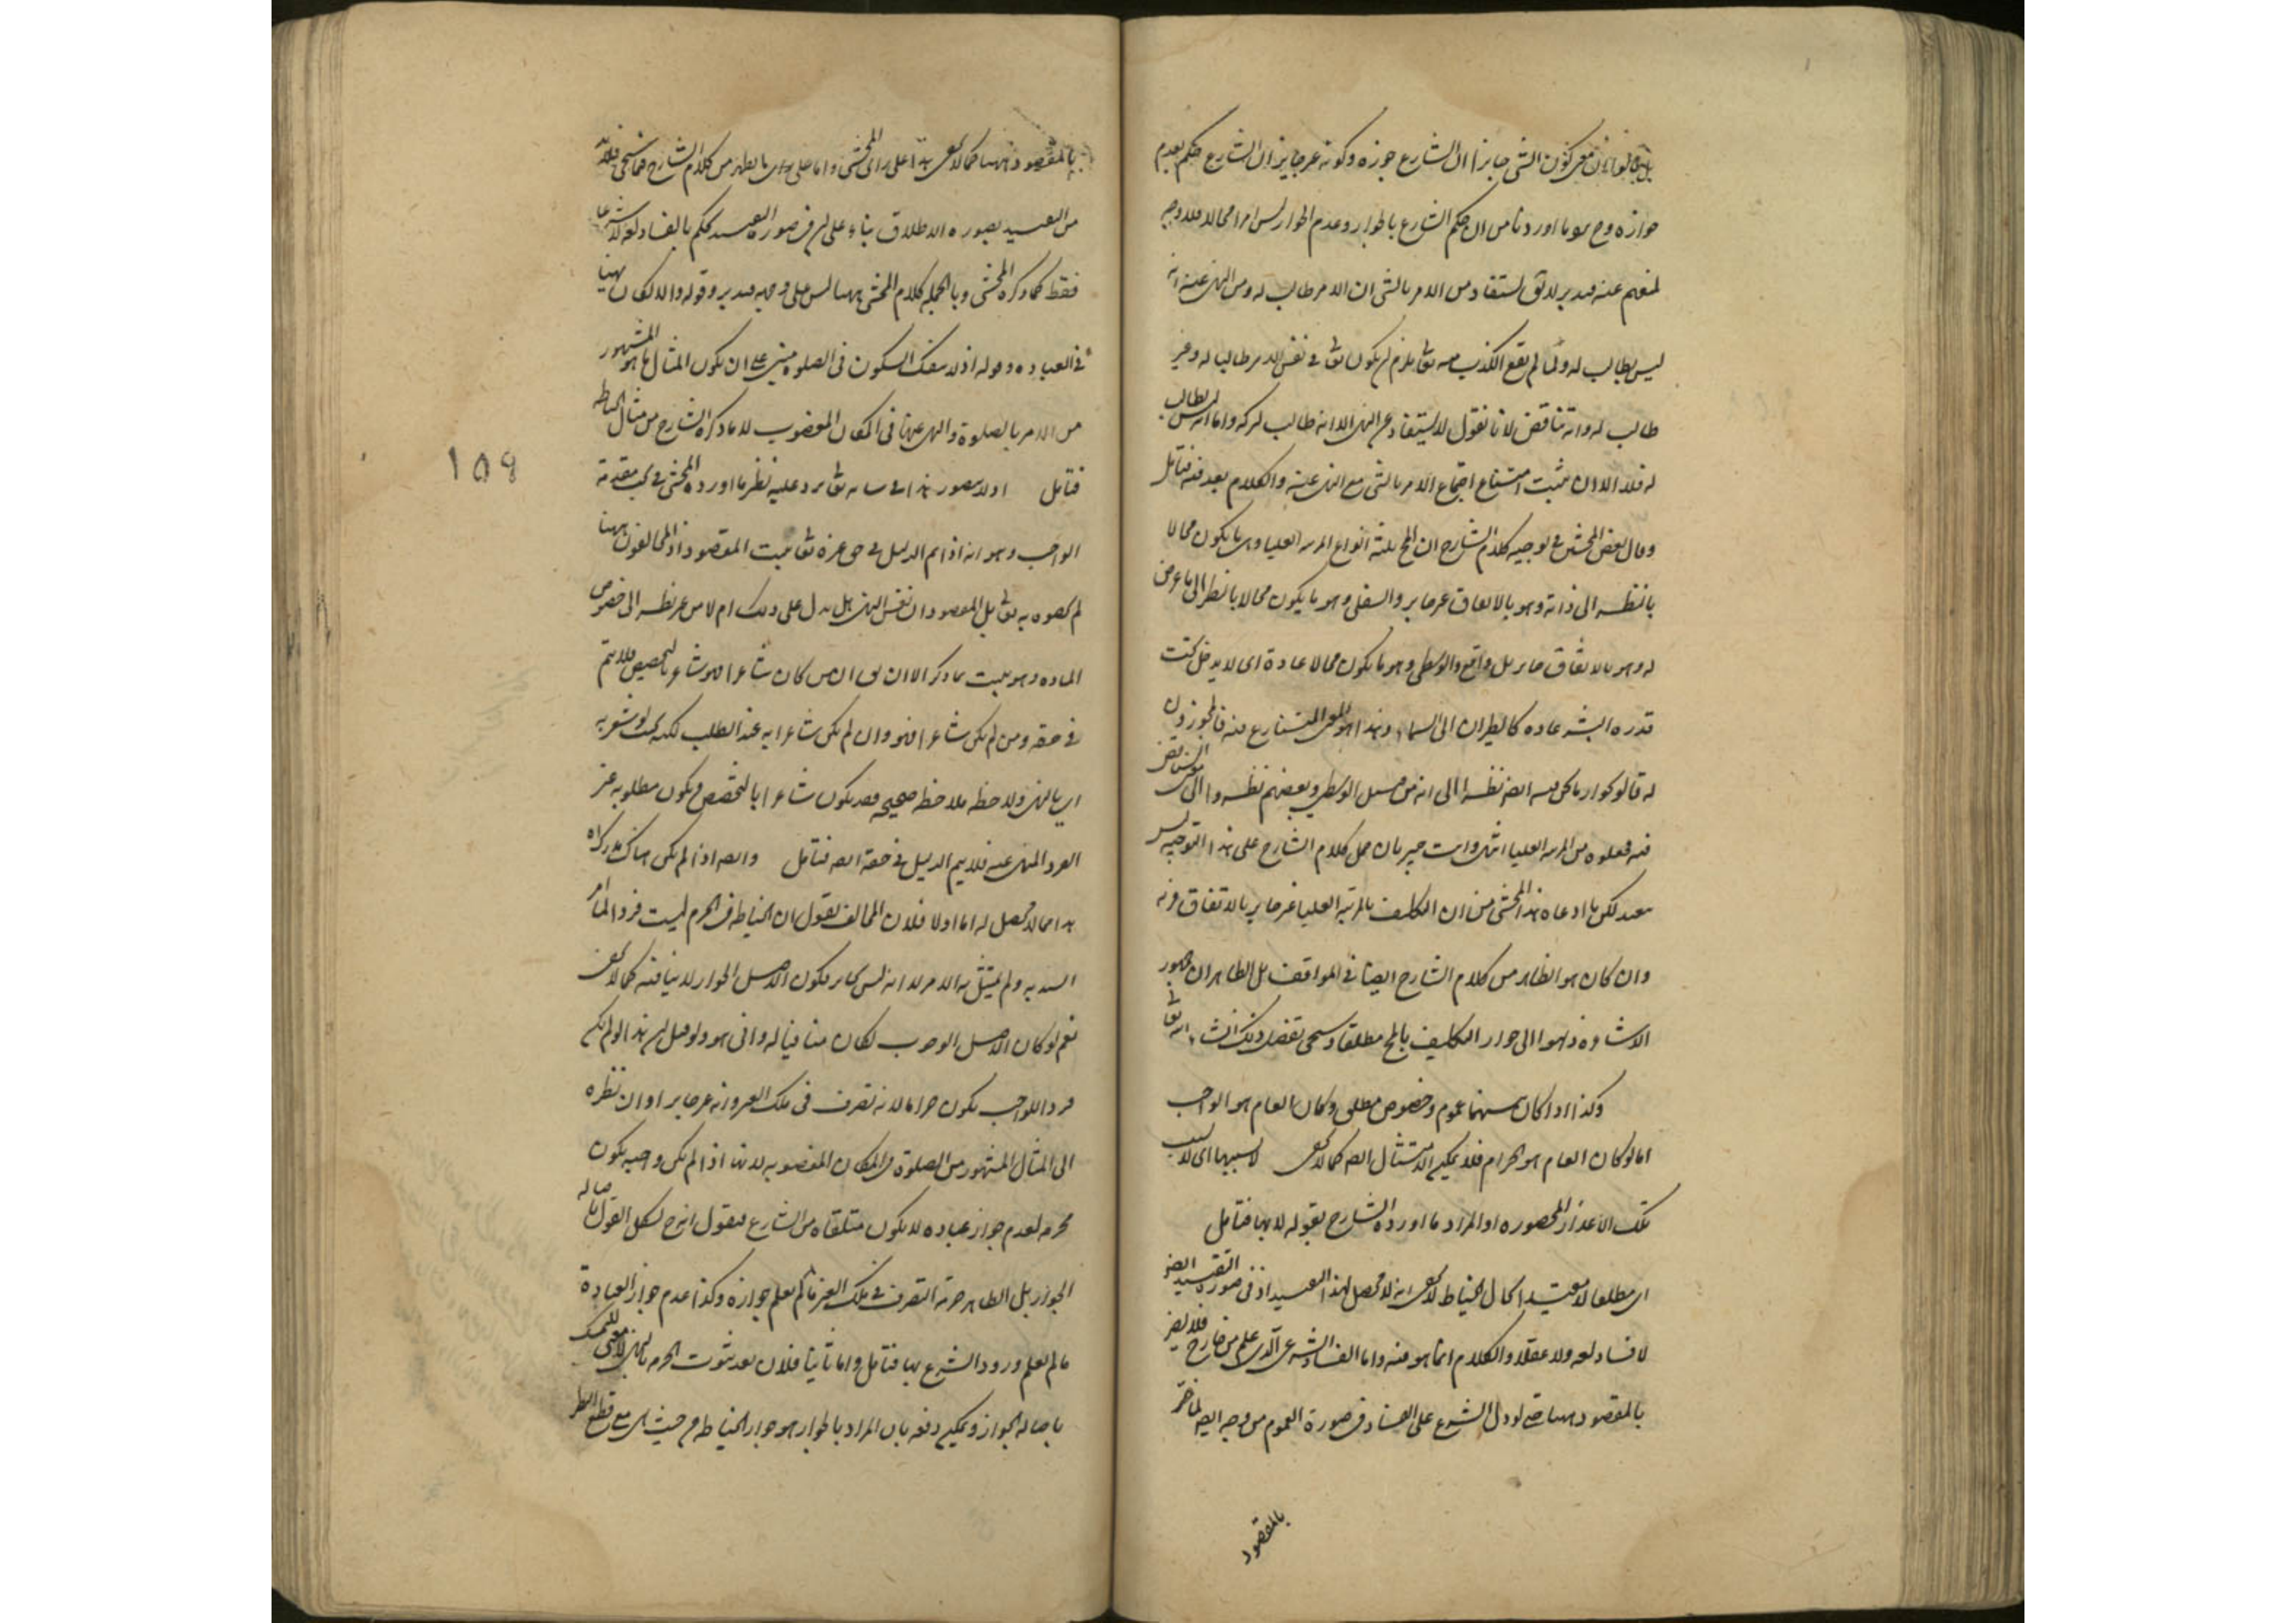 معنى كون الشي جايزا ان الشارع جوزه وكونه غير جايز ان الشارع حكم بعدم
جوازه وح اوردنا من ان حكم الشارع بالجواز وعدم الجواز ليس امرا محالا فلا وجه
لمنعهم عنه فتدبر لا يق يستفاد من الامر بالشي ان الامر طالب له ومن النهى عنه انه
ليس بطالب له ولما لم يقع الكذب منه تعا يلزم ان يكون تعا في نفس الامر طالبا له وغير
طالب له وانه تناقض لانا نقول لا يستفاد من النهى الا انه طالب لتركه واما انه ليس بطالب
له فلا الا ان يثبت امتناع اجتماع الامر بالشي مع النهى عنه والكلام بعد فيه فتامل
وقال بعض المحشين في توجيه كلام الشارح ان المحال ثلثة انواع المرتبة العليا وهى ما يكون محالا
بالنظر الى ذاته وهو بالاتفاق غير جايز والسفلى وهو ما يكون محالا بالنظر الى ما عرض
له وهو بالاتفاق جايز بل واقع والوسطى وهو ما يكون محالا عادة اى لا يدخل تحت
قدرة البشر عادة كالطيران الى السماء وهذا هو المتنازع فيه فالمجوزون
له قالوا بجواز ما نحن فيه ايضا نظرا الى انه من قبيل الوسطى وبعضهم نظروا الى التناقض
فيه فجعلوه من المرتبة العليا انتهى وانت خبير بان حمل كلام الشارح على هذا التوجيه ليس
ببعيد لكن ما ادعاه هذا المحشى من ان التكليف بالمرتبة العليا غير جايز بالاتفاق
وان كان هو الظاهر من كلام الشارح ايضا في المواقف بل الظاهر ان جمهور
الاشاعرة ذهبوا الى جواز التكليف بالمحال مطلقا وسيجى تفصيل ذلك انشاء الله تعا
وكذا اذا كان بينهما عموم وخصوص مطلق وكان العام هو الواجب
اما لو كان العام هو الحرام فلا يمكن الامتثال ايضا كما لا يخفى لا بسببها اى لا بسبب
تلك الاعذار المحصورة او المراد ما اورده الشارح بقوله لانها فتامل
اى مطلقا لا مقيدا كحال الخياطة لا يخفى انه لا محصل لهذا التقييد اذ في صورة التقييد ايضا
لا فساد لغة ولا عقلا والكلام انما هو فيه واما الفساد الشرعى الذى علم من خارج فلا يضر
بالمقصود ههنا حتى لو دل الشرع على الفساد في صورة العموم من وجه ايضا لما ضر
بالمقصود
بالمقصود ههنا كما لا يخفى هذا على راى المحشى واما على ما يظهر من كلام الشارح فما سيجى فلا بد
من التقييد بصورة الاطلاق بناء على ان في صورة التقييد يحكم بالفساد لغة لا شرعا
فقط كما ذكره المحشى وبالجملة كلام المحشى ههنا ليس على وجهه فتدبر وقوله والاكوان ههنا
في العبادة وقوله اذ لا ينفك السكون في الصلوة مبنى على ان يكون المثال ما هو المشهور
من الامر بالصلوة والنهى عنها في المكان المغصوب لا ما ذكره الشارح من مثال الخياطة
فتامل اولا يتصور هذا في شانه تعا يرد عليه نظير ما اورده المحشى في بحث مقدمة
الواجب وهو انه اذا تم الدليل في حق غيره تعا يثبت المقصود اذ المخالفون ههنا
لم يخصوه به تعا بل المقصود ان نفس النهى هل يدل على ذلك ام لا من غير نظر الى خصوص
المادة وهو يثبت بما ذكر الا ان يق ان من كان شاعرا فهو شاعر بالتخصيص فلا يتم
في حقه ومن لم يكن شاعرا فهو وان لم يكن شاعرا به عند الطلب لكنه بحيث لو شعر به
اى بالنهى ولاحظه ملاحظة صحيحة قد يكون شاعرا بالتخصيص ويكون مطلوبه غير
الفرد المنهى عنه فلا يتم الدليل في حقه ايضا فتامل وايضا اذا لم يكن هناك
هذا مما لا محصل له اما اولا فلان المخالف يقول ان الخياطة في الحرم ليست فردا لما امر
السيد به ولم يمتثل به الامر لا انه ليس بجايز فكون الاصل الجواز لا ينافيه كما لا يخفى
نعم لو كان الاصل الوجوب لكان منافيا له وانى هو ولو قيل ان هذا لو لم يكن
فردا للواجب يكون حراما لانه تصرف في ملك الغير وانه غير جايز او ان نظره
الى المثال المشهور من الصلوة في المكان المغصوبه لانها اذا لم يكن واجبه يكون
محرمه لعدم جواز عبادة لا يكون متلقاة من الشارع فنقول انه ح يشكل القول باصالة
الجواز بل الظاهر حرمة التصرف في ملك الغير ما لم يعلم جوازه وكذا عدم جواز العبادة
ما لم يعلم ورود الشرع بها فتامل واما ثانيا فلان بعد ثبوت الحرمة بالنهى لا معنى للتمسك
باصالة الجواز ويمكن دفعه بان المراد بالجواز هو جواز الخياطة من حيث هى مع قطع النظر
١٥٩